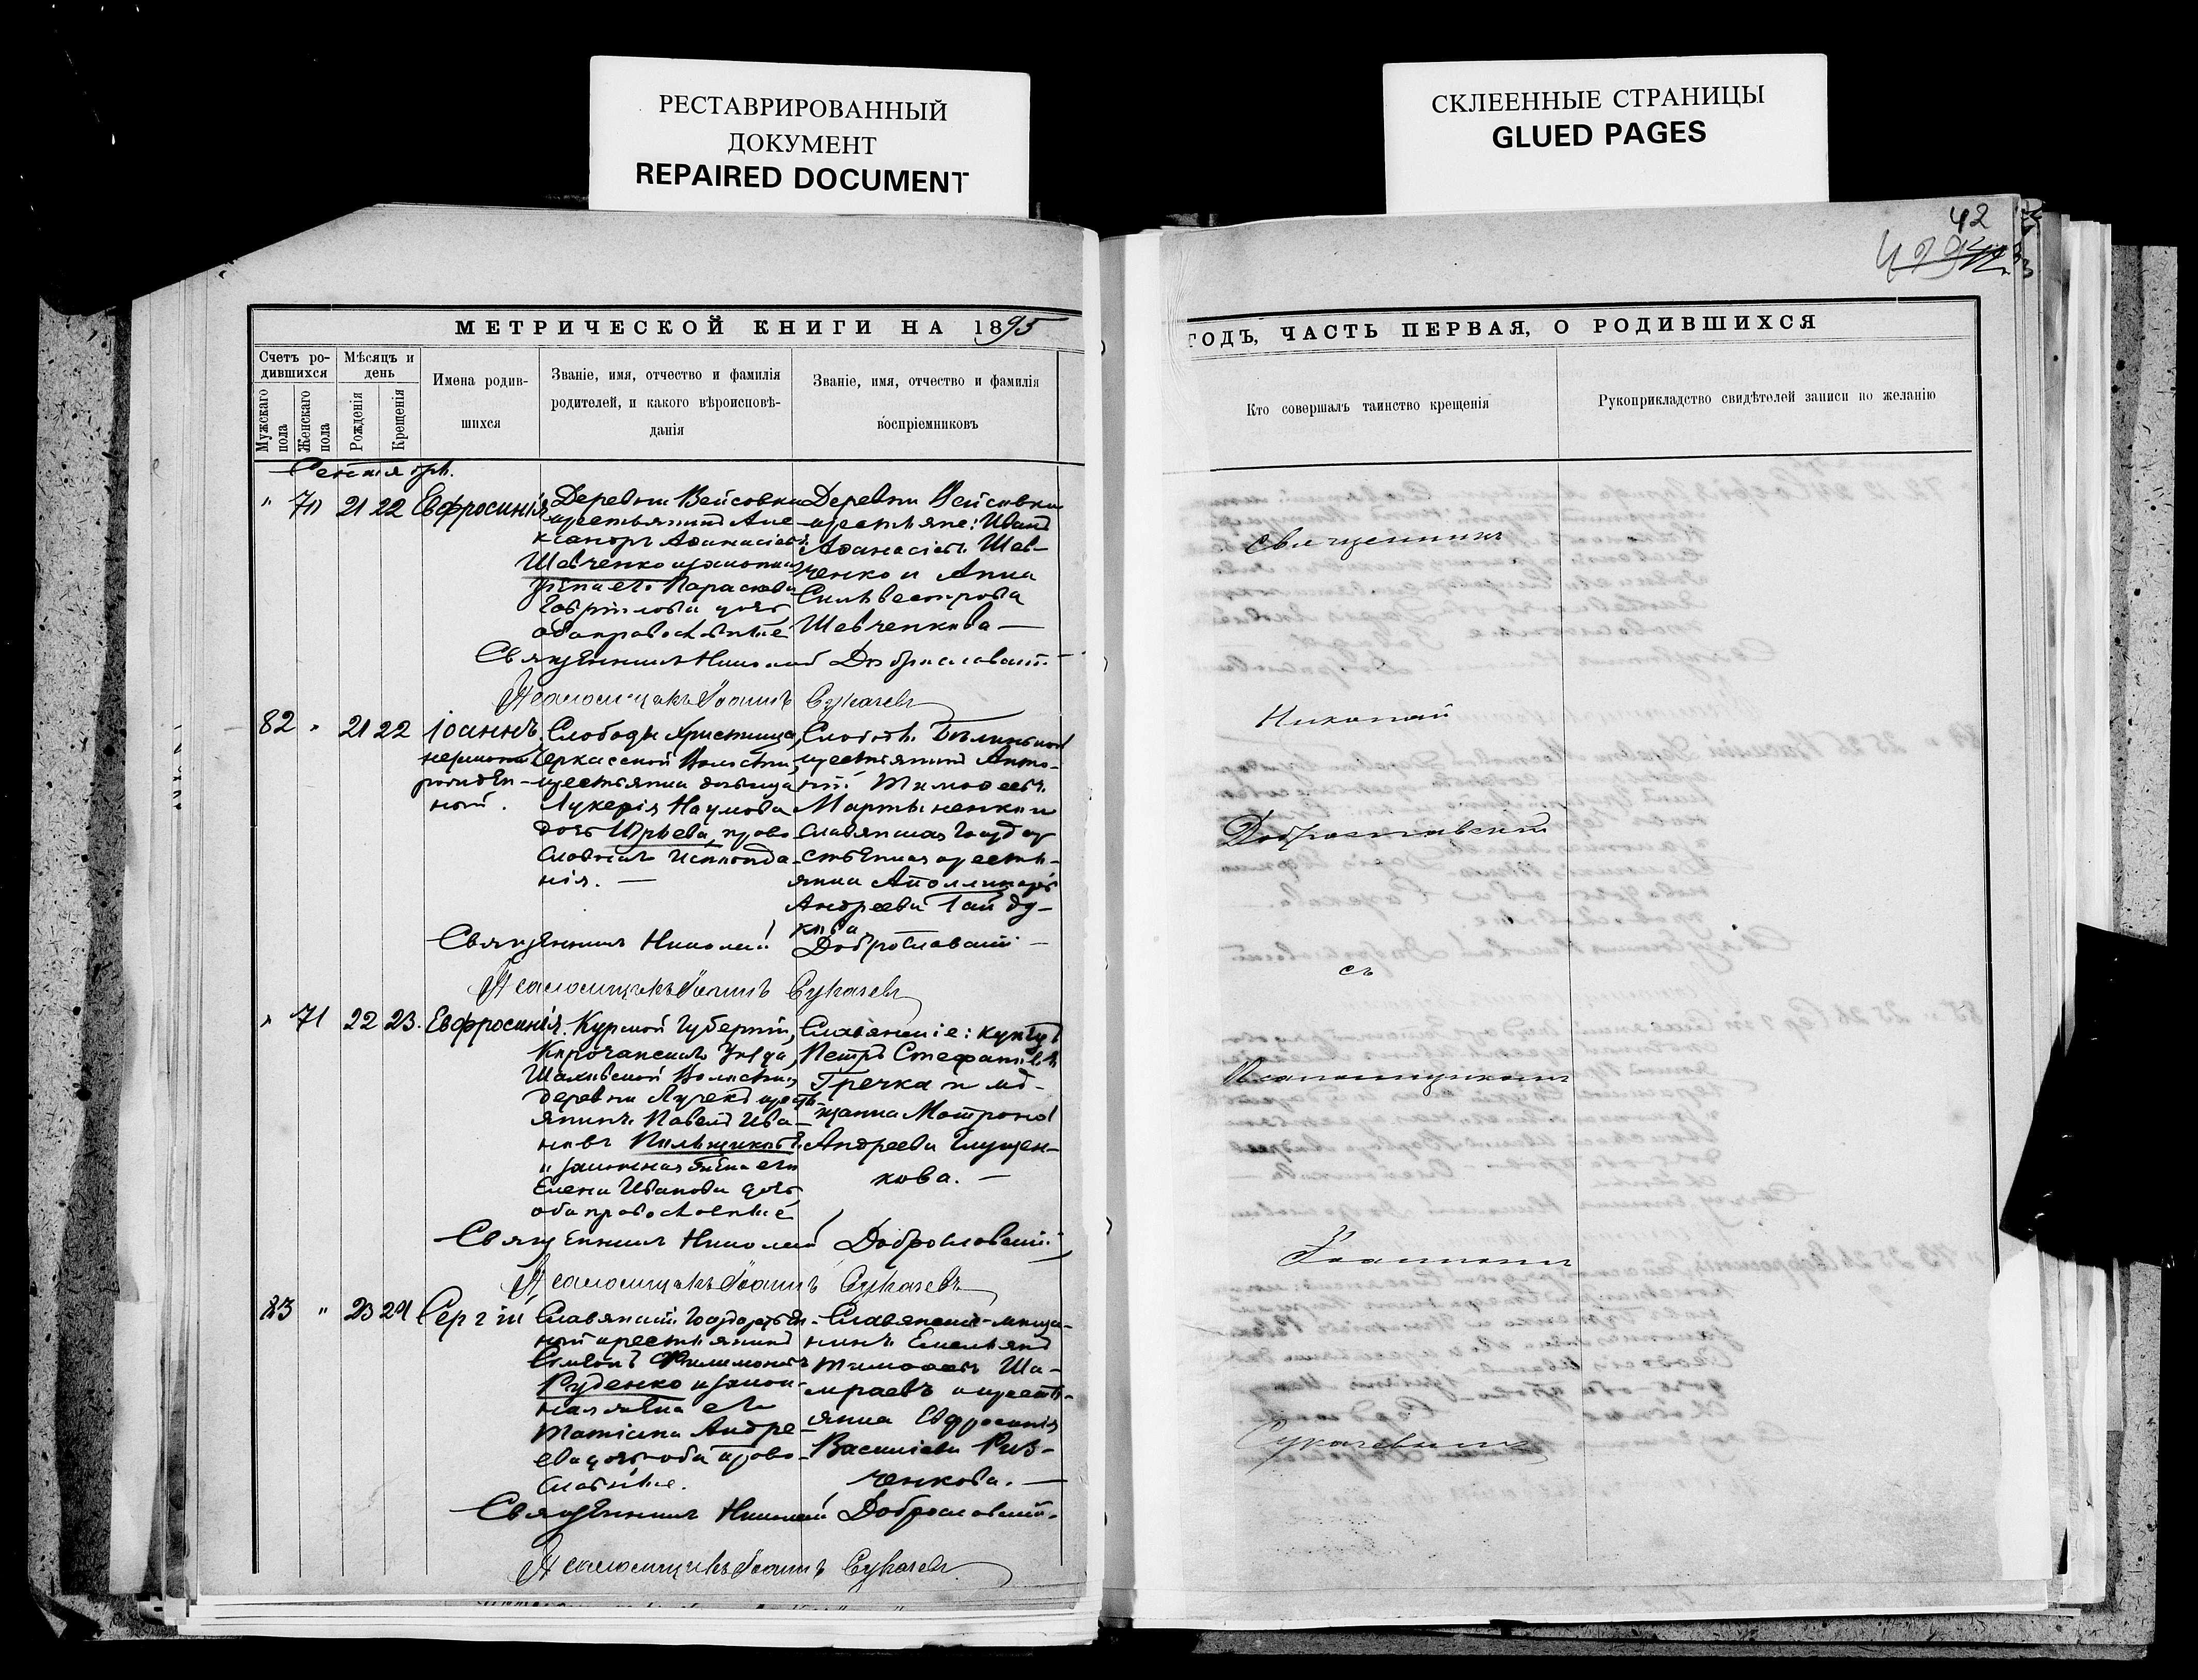 РЕСТАВРИРОВАННЫЙ
ДОКУМЕНТ
REPAIRED DOCUMENT
СКЛЕЕННЫЕ СТРАНИЦЫ
GLUED PAGES
42
МЕТРИЧЕСКОЙ КНИГИ НА 1895
Счетъ ро-
дившихся
Мужскаго пола
Женскаго пола
Мѣсяцъ и
день
Рожденія
Крещенія
Имена родив-
шихся
Званіе, имя, отчество и фамилія
родителей, и какого вѣроисповѣ-
данія
Званіе, имя, отчество и фамилія
воспріемниковъ
Сентябрь.
" 70 21 22 Евфросинія
Деревни Вейсовки
крестьянинъ Але-
ксандръ Аѳанасіевъ
Шевченко и законная
жена его Параскева
Гавріилова дочь
оба православные
Деревни Вейсовки
крестьяне: Иванъ
Аѳанасіевъ Шев-
ченко и Анна
Сильвестрова
Шевченкова —
Священникъ Николай Доброславскій.
Псаломщикъ Іоаннъ Сукачевъ
82 " 21 22 Іоаннъ
незаконно
рожден-
ный.
Слободы Христища,
Черкасской Волости,
крестьянка дѣвица
Лукерія Наумова
дочь Юрьева, право-
славнаго исповѣда-
нія. —
крестьянинъ Анто-
ній Тимоѳеевъ
Мартыненко и
Славянская Государ-
ственная крестья-
янка Аполлинарія
Андреева Гайду-
кова
Священникъ Николай Доброславскій —
Псаломщикъ Іоаннъ Сукачевъ
" 71 22 23. Евфросинія.
Курской Губерніи,
Корочанскаго Уѣзда,
Шаховской Волости,
деревни
янинъ Павелъ Ива-
новъ Пильщиковъ
и законная жена его
Елена Иванова дочь
оба православные
Славянскіе: купецъ
Петръ Стефановъ
Гречка и мѣ-
щанка Матрона
Андреева Глущен-
кова. —
Священникъ Николай Доброславскій
Псаломщикъ Іоаннъ Сукачевъ
83 " 23 24 Сергій
Славянскій Государствен-
ный крестьянинъ
Симеонъ Филимоновъ
Руденко и закон-
ная жена его
Татіана Андре-
ева дочь оба право-
славные.
Славянскіе мѣща-
нинъ Емельянъ
Тимоѳеевъ Ша-
мраевъ и кресть-
янка Евфросинія
Василіева Рыз-
ченкова. —
Священникъ Николай Доброславскій.
Псаломщикъ Іоаннъ Сукачевъ
ГОДЪ, ЧАСТЬ ПЕРВАЯ, О РОДИВШИХСЯ
Кто совершалъ таинство крещенія
Рукоприкладство свидѣтелей записи по желанію
Священникъ
Николай
Доброславскій
съ
Псаломщикомъ
Іоанномъ
Сукачевымъ